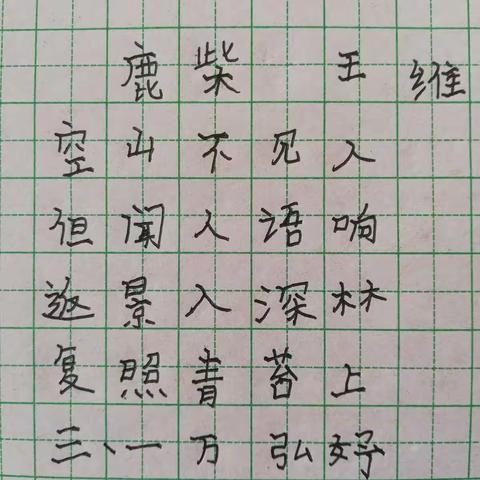 鹿柴 王维
空山不见人
但闻人语响
返景入深林
复照青苔上
三、一万弘好